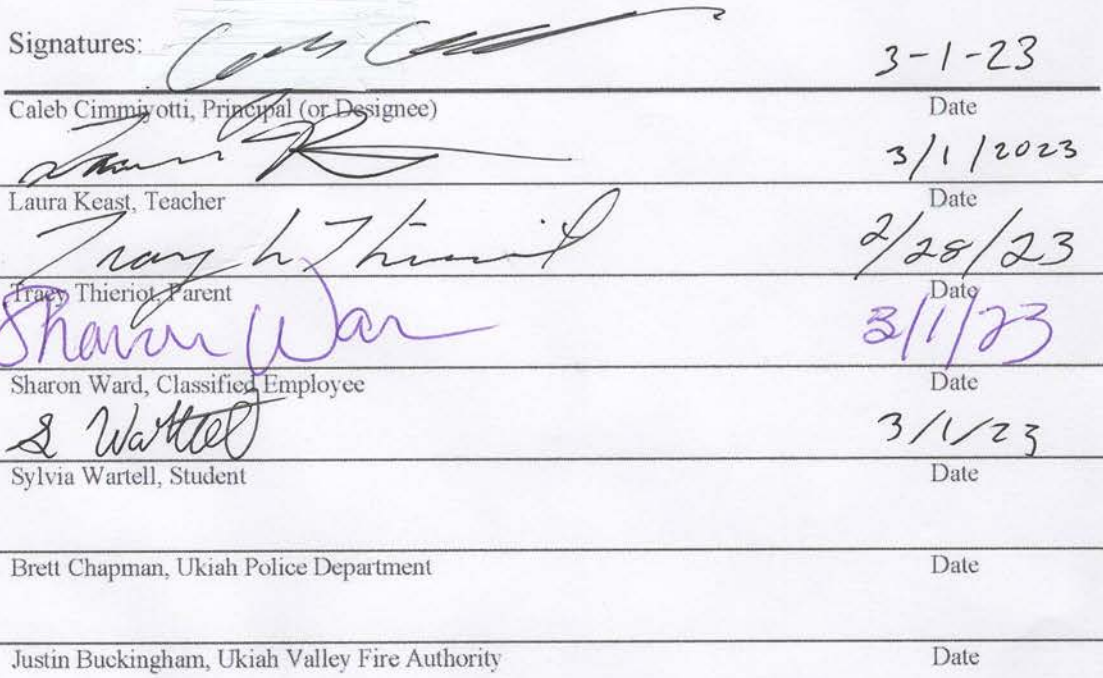 Signatures:
3-1-23
Caleb Cimmiyotti, Principal (or Designee)
Date
3/1/2023
Laura Keast, Teacher
Date
Tracy L Thieriot
2/28/23
Tracy Thieriot, Parent
Date
Sharon War
3/1/23
Sharon Ward, Classified Employee
Date
S Wartell
3/1/23
Sylvia Wartell, Student
Date
Brett Chapman, Ukiah Police Department
Date
Justin Buckingham, Ukiah Valley Fire Authority
Date